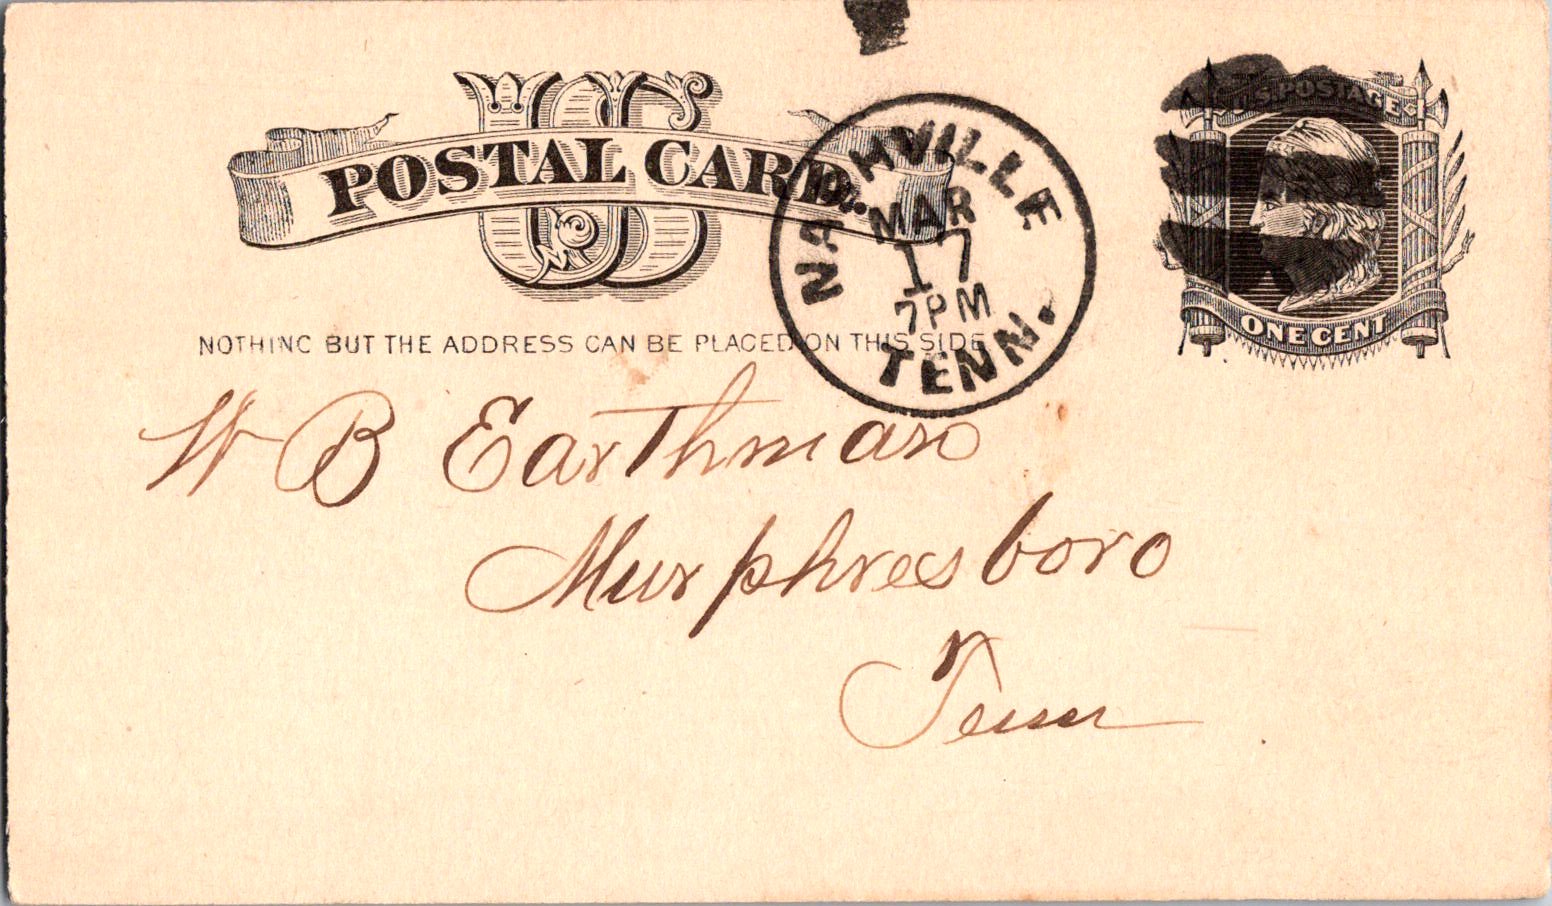 US
POSTAL CARD.
NASHVILLE
MAR
17
7PM
TENN.
U.S. POSTAGE
ONE CENT
NOTHING BUT THE ADDRESS CAN BE PLACED ON THIS SIDE
W B Earthman
Murphresboro
Tenn